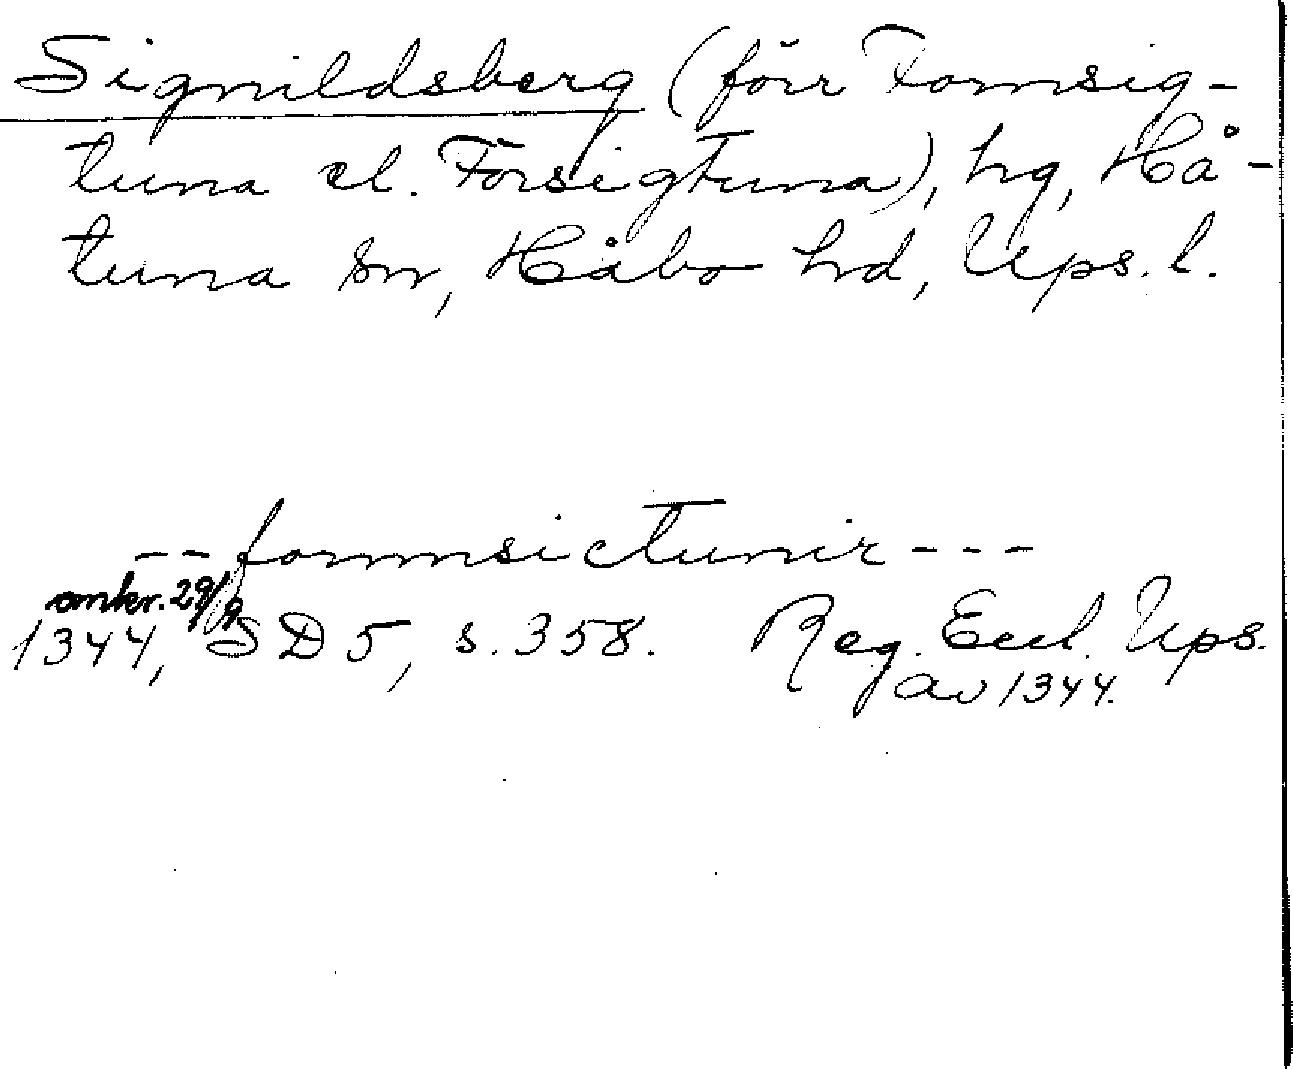 Signildsberg (förr Fornsig-
tuna el. Försigtuna), hg, Hå-
tuna sn, Håbo hd, Ups. l.
-- fornnsictunir ---
omkr. 29/9
1344, SD 5, s. 358. Reg. Eccl. Ups.
av 1344.